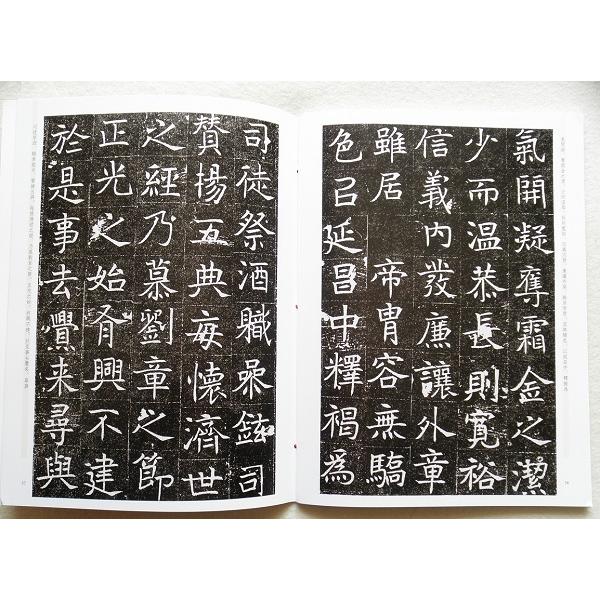 氣開凝奪霜金之潔
少而溫恭長則寬裕
信義內發廉讓外章
雖居 帝胄容無驕
色㠯延昌中釋褐為
司徒祭酒職鉉司
贊揚五典每懷濟世
之經乃慕劉章之節
正光之始肴興不建
於是事去舋來尋與